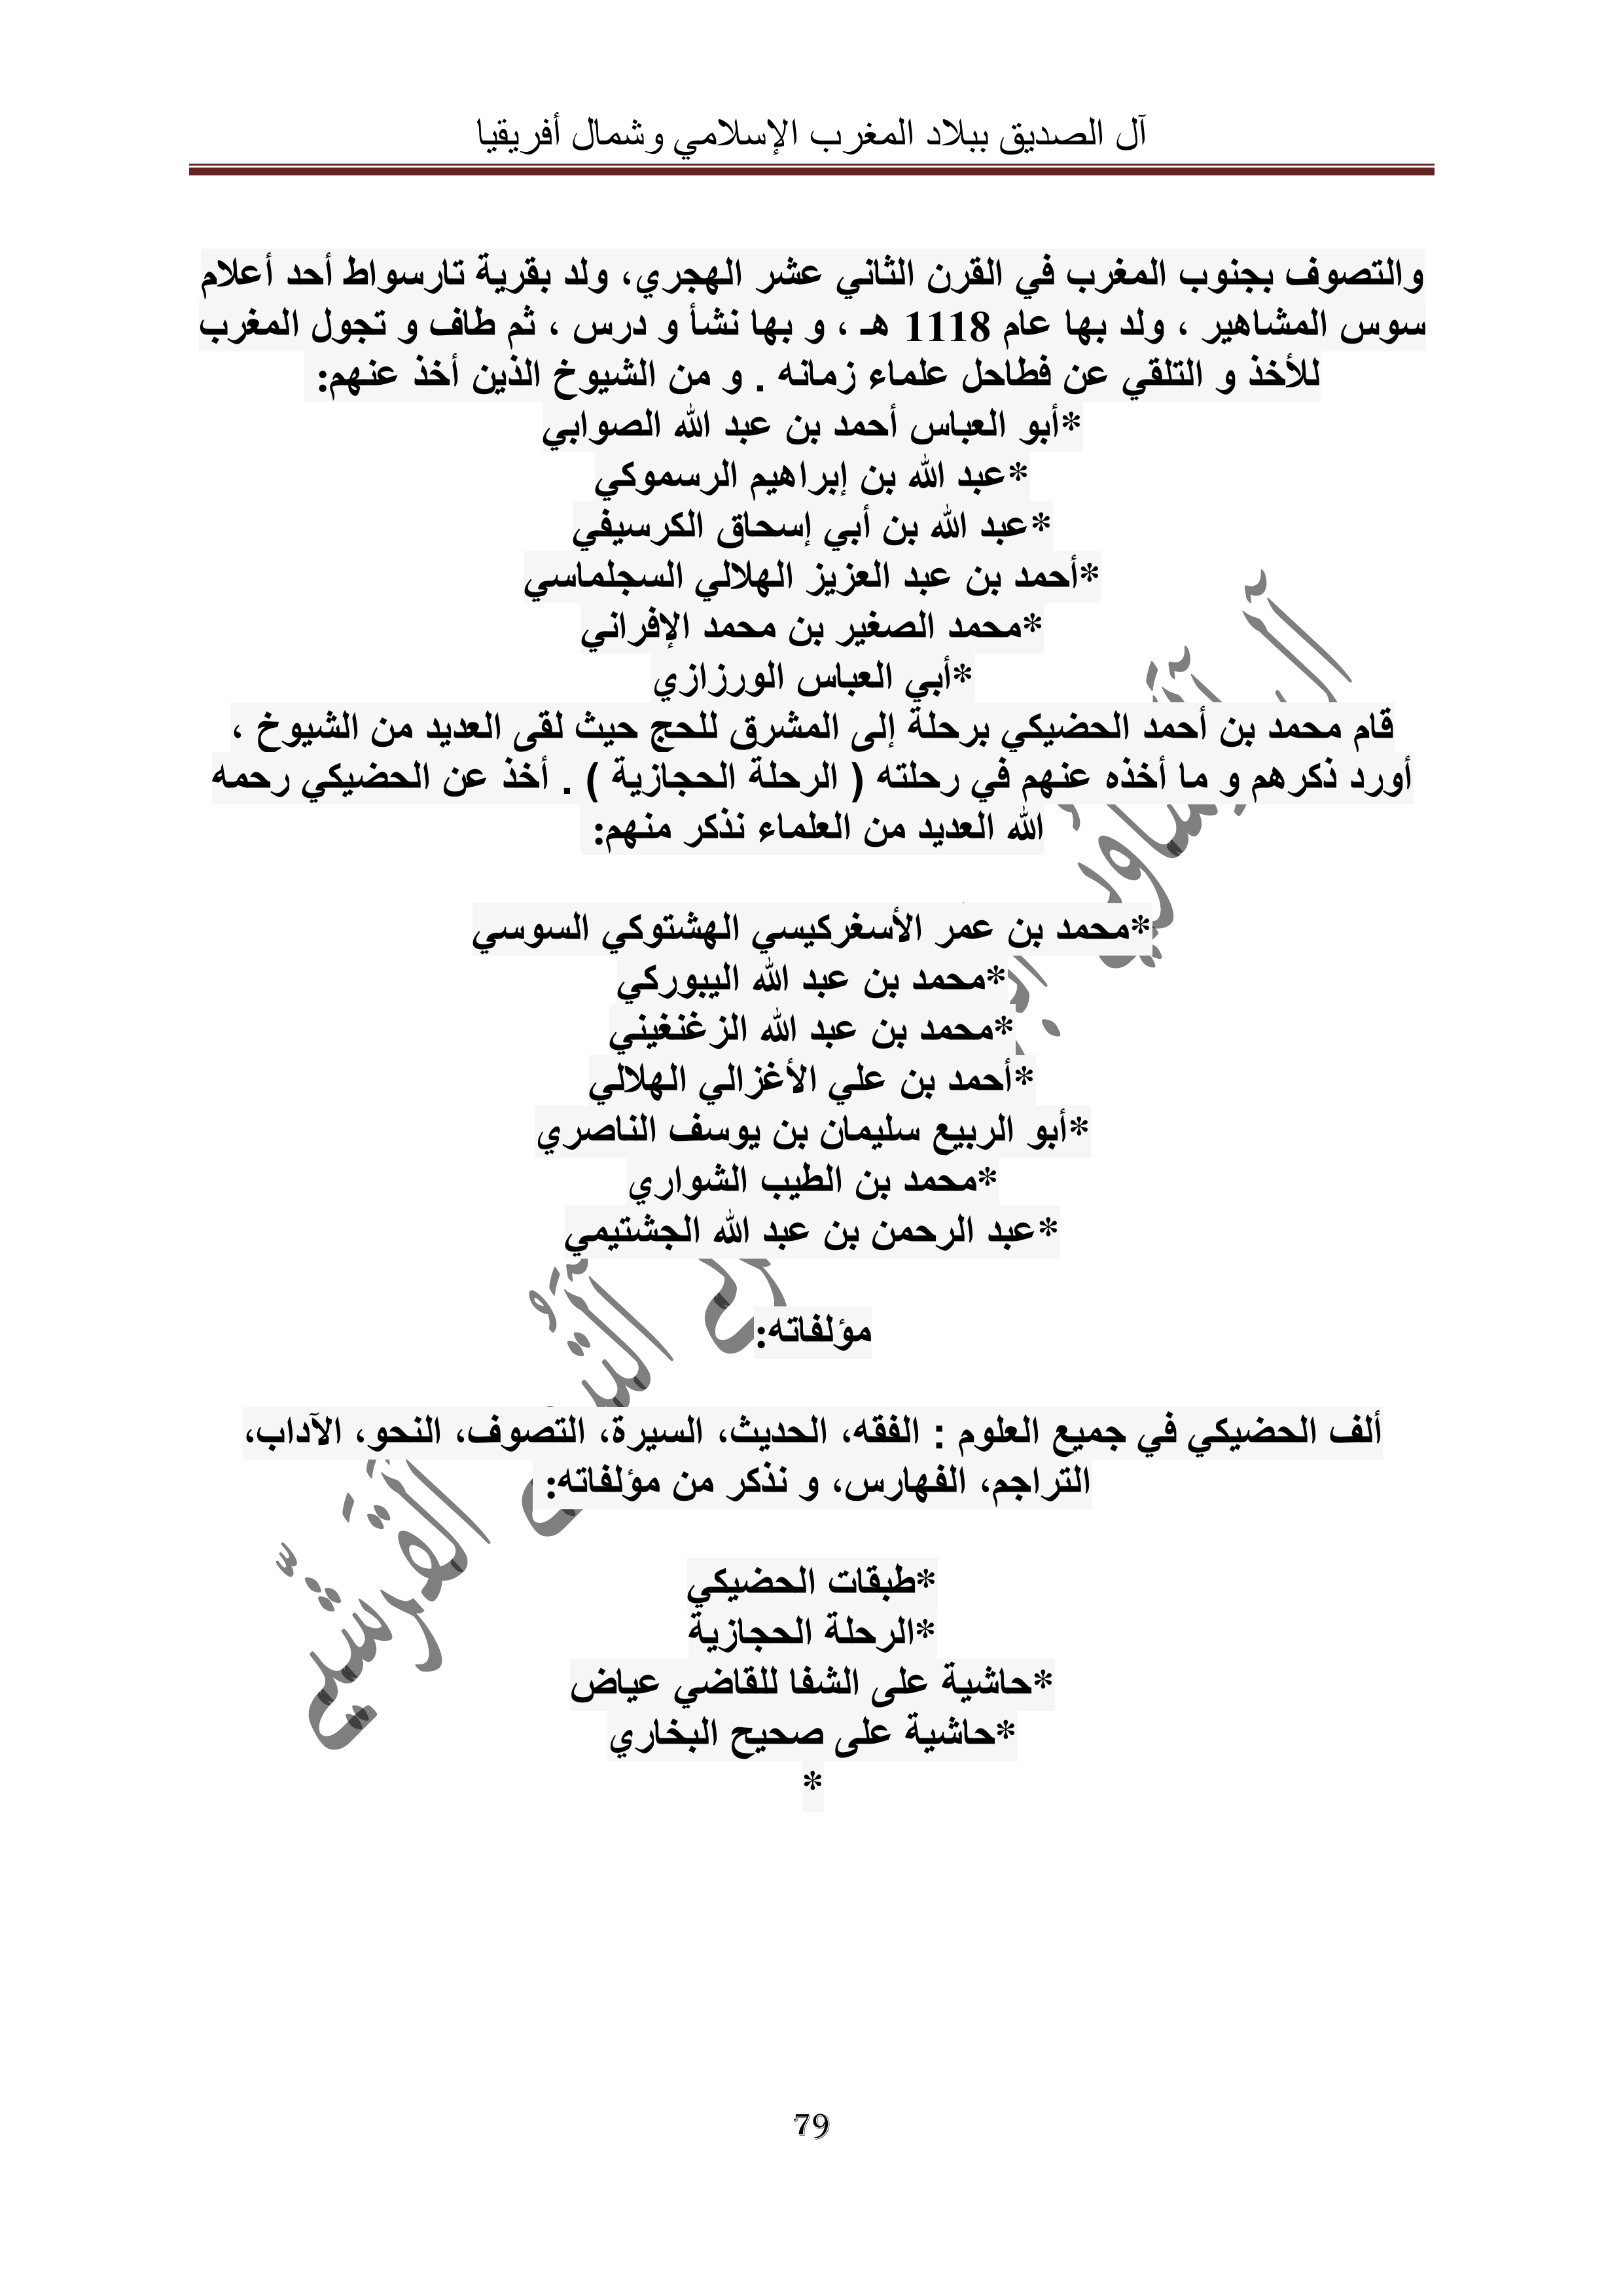 آل الصديق ببلاد المغرب الإسلامي وشمال أفريقيا
والتصوف بجنوب المغرب في القرن الثاني عشر الهجري، ولد بقرية تارسواط أحد أعلام
سوس المشاهير ، ولد بها عام 1118 هـ ، و بها نشأ و درس ، ثم طاف و تجول المغرب
للأخذ و التلقي عن فطاحل علماء زمانه . و من الشيوخ الذين أخذ عنهم:
*أبو العباس أحمد بن عبد الله الصوابي
*عبد الله بن إبراهيم الرسموكي
*عبد الله بن أبي إسحاق الكرسيفي
*أحمد بن عبد العزيز الهلالي السجلماسي
*محمد الصغير بن محمد الإفراني
*أبي العباس الورزازي
قام محمد بن أحمد الحضيكي برحلة إلى المشرق للحج حيث لقى العديد من الشيوخ ،
أورد ذكرهم و ما أخذه عنهم في رحلته ( الرحلة الحجازية ) . أخذ عن الحضيكي رحمه
الله العديد من العلماء نذكر منهم:
*محمد بن عمر الأسغركيسي الهشتوكي السوسي
*محمد بن عبد الله اليبوركي
*محمد بن عبد الله الزغنغيني
*أحمد بن علي الأغزالي الهلالي
*أبو الربيع سليمان بن يوسف الناصري
*محمد بن الطيب الشواري
*عبد الرحمن بن عبد الله الجشتيمي
مؤلفاته:
ألف الحضيكي في جميع العلوم : الفقه، الحديث، السيرة، التصوف، النحو، الآداب،
التراجم، الفهارس، و نذكر من مؤلفاته:
*طبقات الحضيكي
*الرحلة الحجازية
*حاشية على الشفا للقاضي عياض
*حاشية على صحيح البخاري
*
79